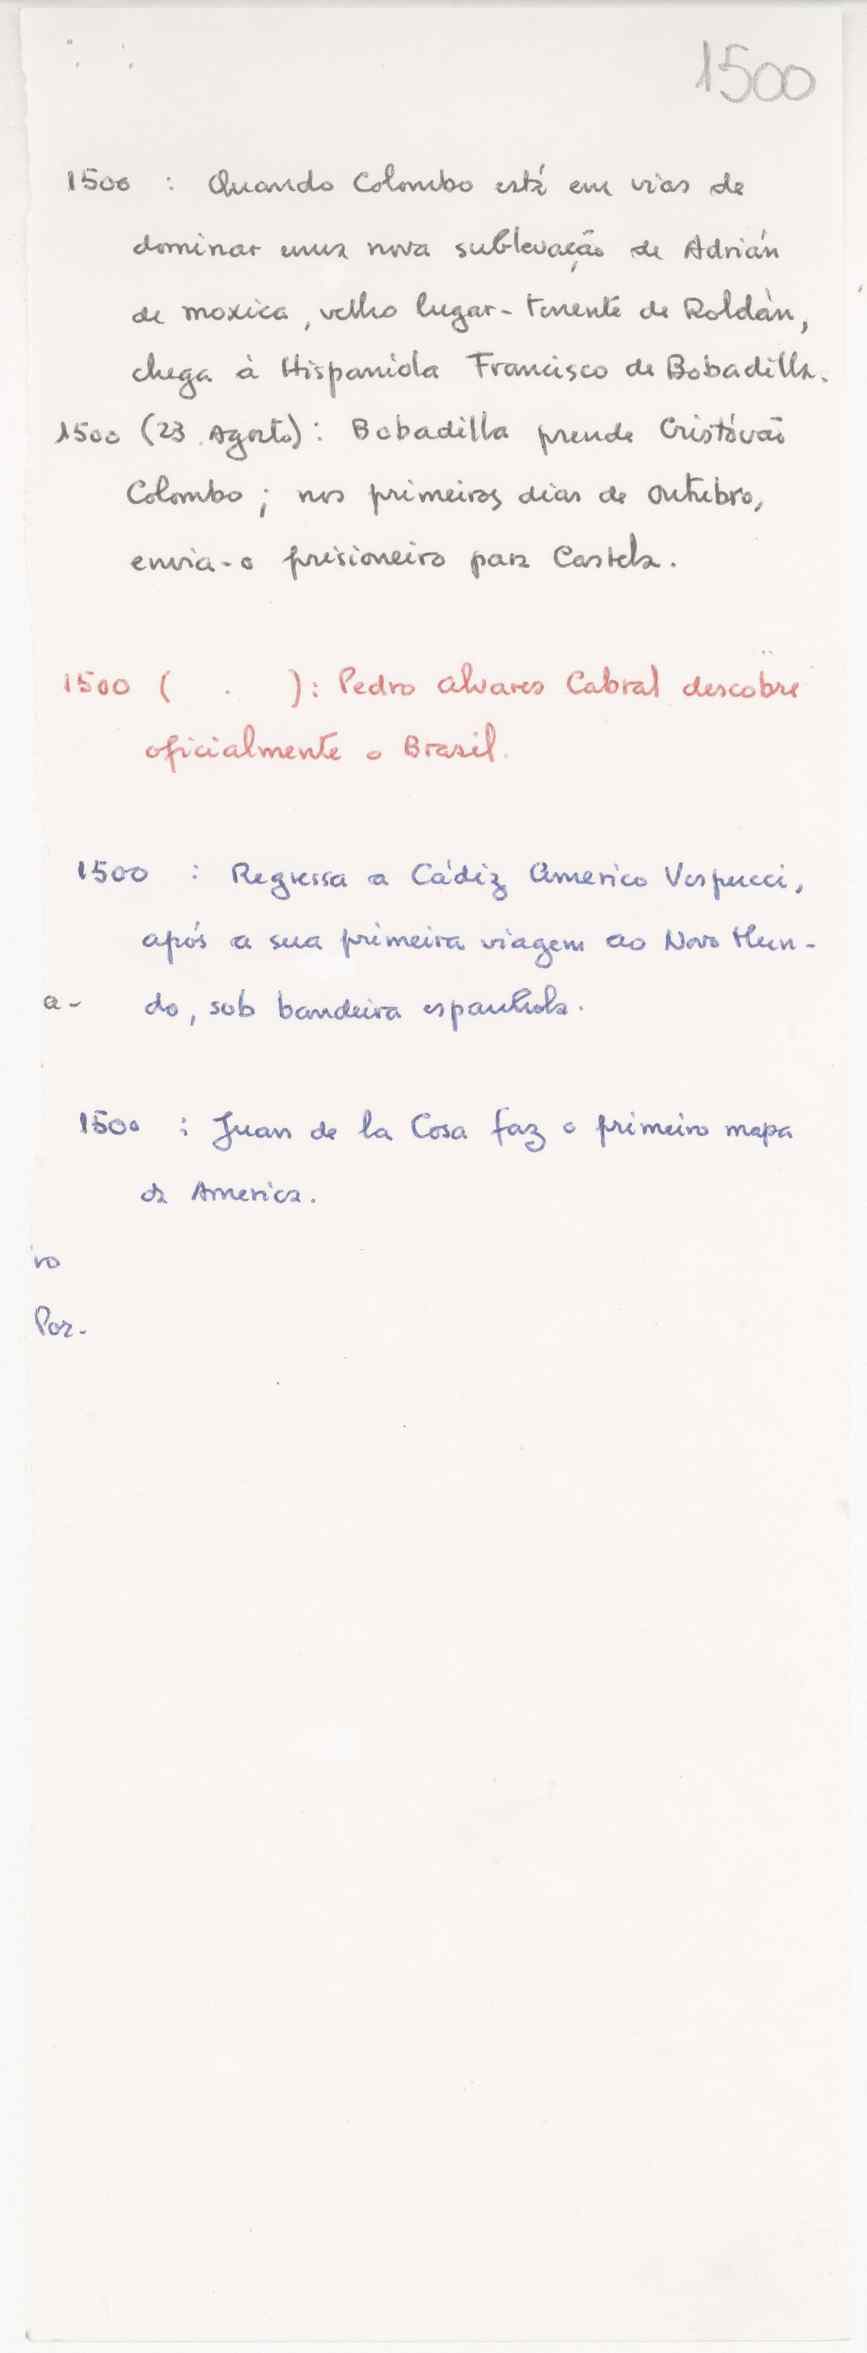 1500
1500 : Quando Colombo está em vias de
dominar uma nova sublevação de Adrián
de moxica, velho lugar-tenente de Roldán,
chega à Hispaniola Francisco de Bobadilla.
1500 (23 Agosto): Bobadilla prende Cristóvão
Colombo; nos primeiros dias de outubro,
envia-o prisioneiro para Castela.
1500 ( . ): Pedro alvares Cabral descobre
oficialmente o Brasil.
1500 : Regressa a Cádiz Americo Vespucci,
após a sua primeira viagem ao Novo Mun-
a- do, sob bandeira espanhola.
1500 : Juan de la Cosa faz o primeiro mapa
da America.
ro
Por-